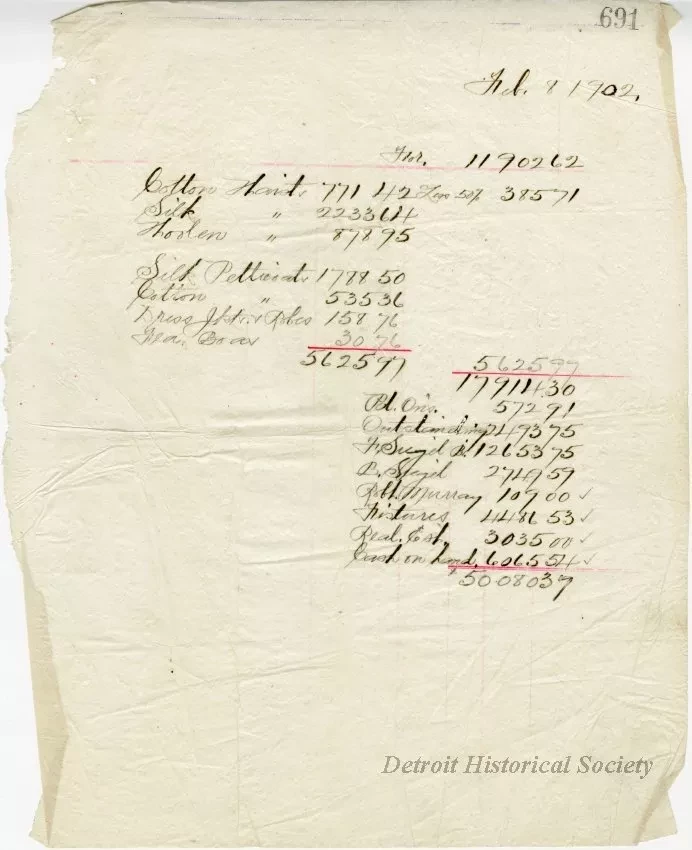 691
Feb. 8 1902.
For. 1190262
Cotton Waists 771 42 Less 50% 38571
Silk " 223364
Woolen " 87895
Silk Petticoats 1788 50
Cotton " 53536
Dress Skts. & Robes 158 76
Fea. Boas 30 76
562597 562597
1791430
Pd. On's. 57291
Outstanding 249375
F. Siegel 1265375
B. Siegel 274959
Robt. Murray 109 00 ✓
Fixtures 448653 ✓
Real. Est. 303500 ✓
Cash on hand, 606554 ✓
$5008037
Detroit Historical Society